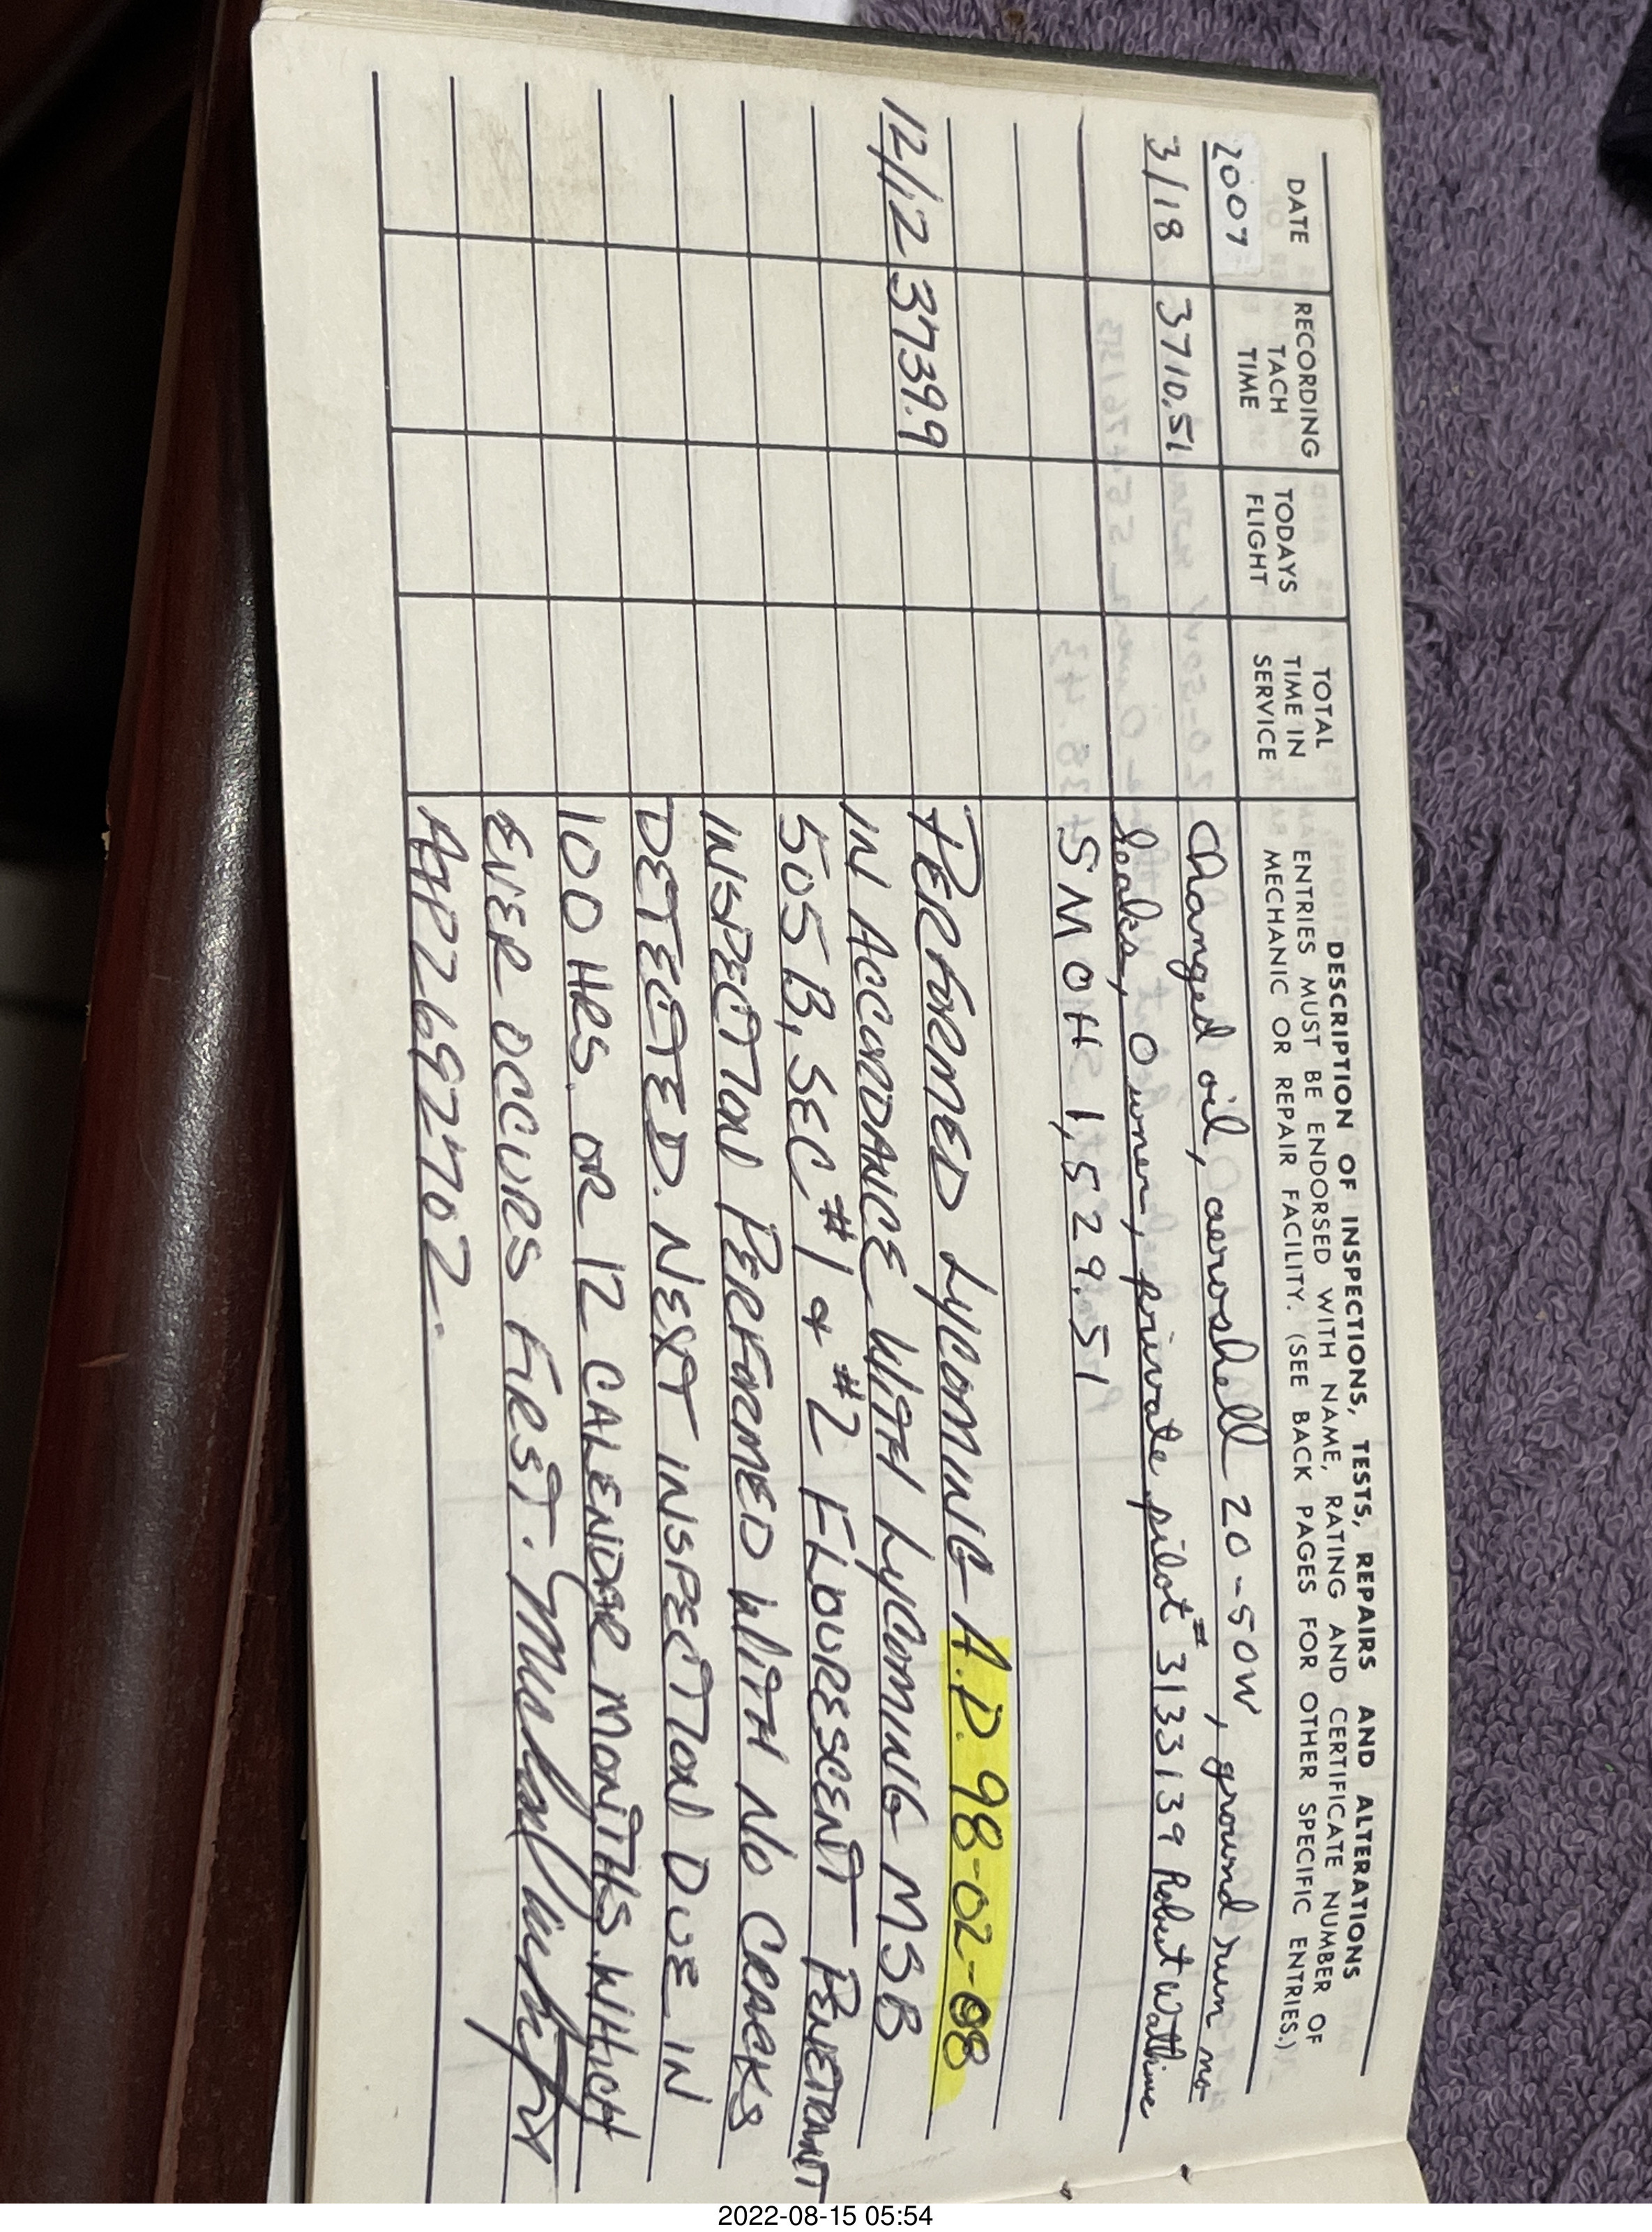 DATE
RECORDING TACH TIME
TODAYS FLIGHT
TOTAL TIME IN SERVICE
DESCRIPTION OF INSPECTIONS, TESTS, REPAIRS AND ALTERATIONS
ENTRIES MUST BE ENDORSED WITH NAME, RATING AND CERTIFICATE NUMBER OF
MECHANIC OR REPAIR FACILITY. (SEE BACK PAGES FOR OTHER SPECIFIC ENTRIES.)
2007 Changed oil, aeroshell 20-50W, ground run no
3/18 3710.51 leaks, Owner, private pilot # 3133139 Robert
SMOH 1,529.51
PERFORMED LYCOMING A.D. 98-02-08
12/12 3739.9 IN ACCORDANCE WITH LYCOMING MSB
505B, SEC #1 & #2 FLOURESCENT PENETRANT
INSPECTION PERFORMED WITH NO CRACKS
DETECTED. NEXT INSPECTION DUE IN
100 HRS. OR 12 CALENDAR MONTHS. WHICH
EVER OCCURS FIRST.
A&P 2692702.
2022-08-15 05:54